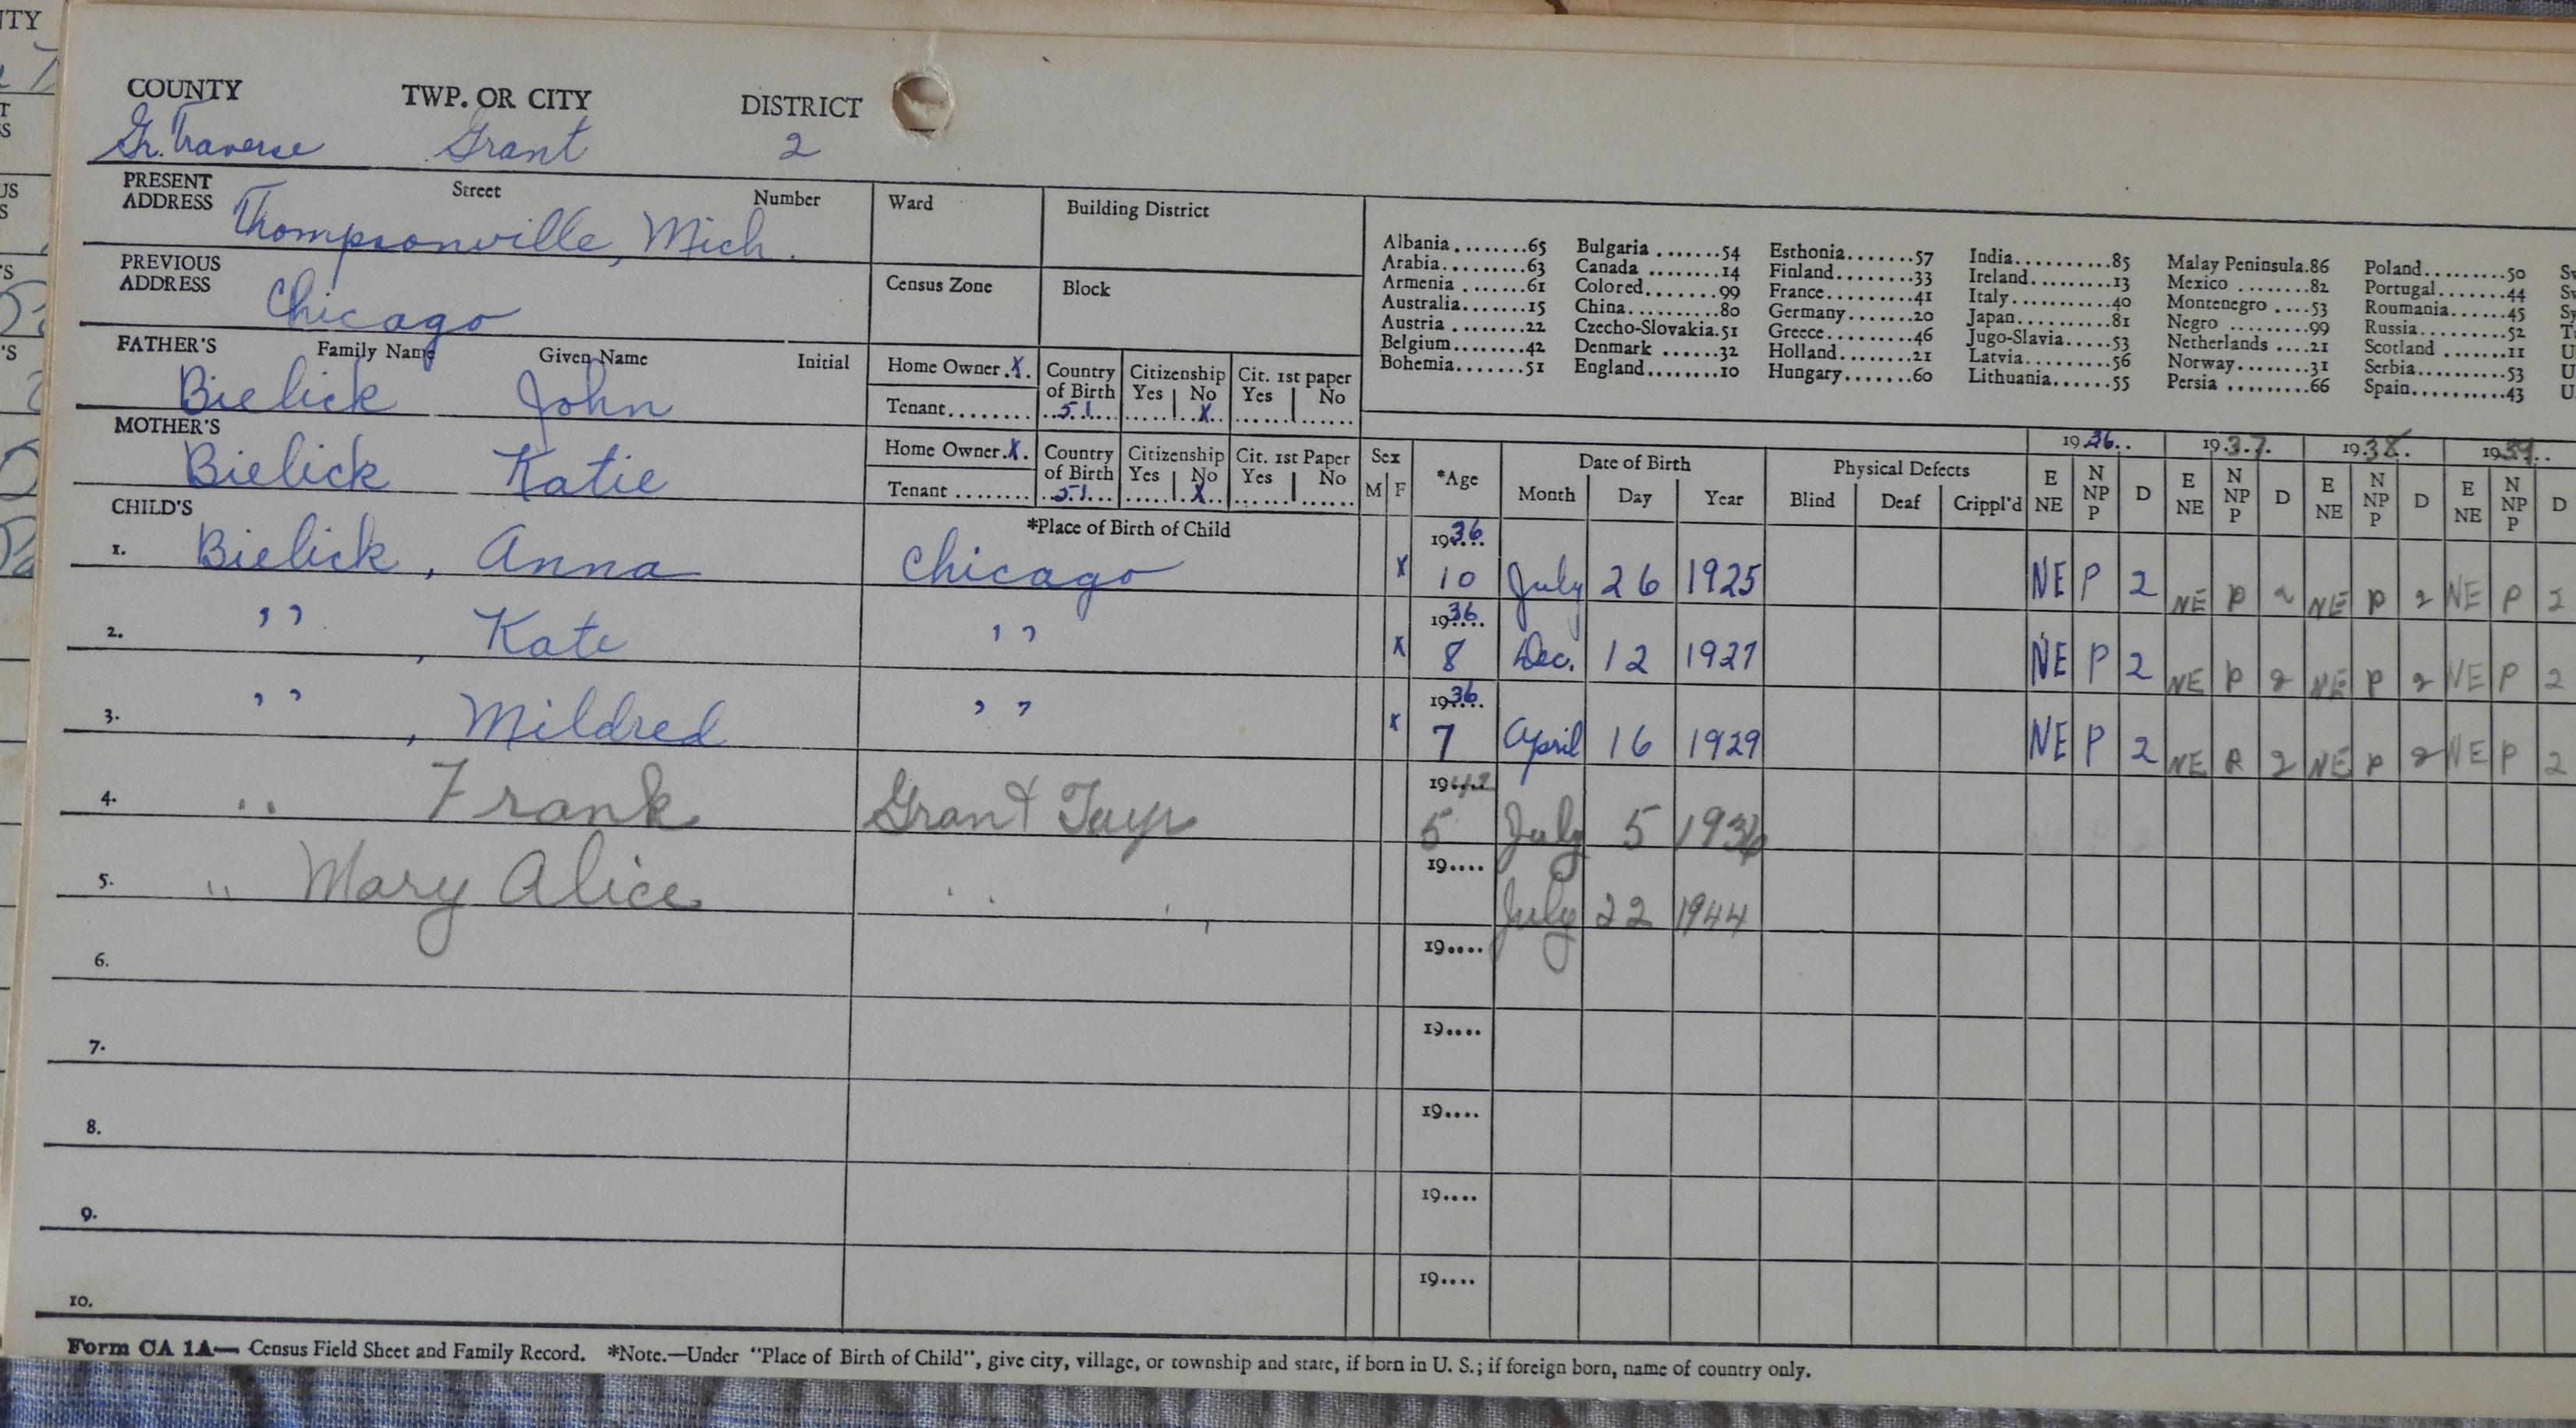 COUNTY TWP. OR CITY DISTRICT
Gr. Traverse Grant 2
PRESENT ADDRESS Street Number Ward Building District
Thompsonville, Mich.
PREVIOUS ADDRESS Census Zone Block
Chicago
Albania........65 Bulgaria.......54 Esthonia.......57 India..........85 Malay Peninsula.86 Poland.........50
Arabia.........63 Canada ........14 Finland........33 Ireland........13 Mexico ........82 Portugal.......44
Armenia .......61 Colored.......99 France.........41 Italy ..........40 Montenegro ....53 Roumania......45
Australia.......15 China..........80 Germany.......20 Japan..........81 Negro .........99 Russia.........52
Austria ........22 Czecho-Slovakia.51 Greece.........46 Jugo-Slavia.....53 Netherlands ....21 Scotland .......11
Belgium.......42 Denmark ......32 Holland........21 Latvia.........56 Norway........31 Serbia.........53
Bohemia.......51 England........10 Hungary.......60 Lithuania......55 Persia .........66 Spain..........43
FATHER'S Family Name Given Name Initial Home Owner.X. Country of Birth Citizenship Yes No Cit. 1st paper Yes No
Bielick John Tenant........ 51 X
MOTHER'S Home Owner.X. Country of Birth Citizenship Yes No Cit. 1st Paper Yes No
Bielick Katie Tenant ........ 51 X
Sex M F *Age Date of Birth Month Day Year Physical Defects Blind Deaf Crippl'd 1936.. 1937. 1938. 1939..
E NE N NP P D E NE N NP P D E NE N NP P D E NE N NP P D
CHILD'S *Place of Birth of Child
1. Bielick, Anna Chicago X 1936 10 July 26 1925 NE P 2 NE P 2 NE P 2 NE P 2
2. " , Kate " X 1936 8 Dec. 12 1927 NE P 2 NE P 2 NE P 2 NE P 2
3. " , Mildred " X 1936 7 April 16 1929 NE P 2 NE P 2 NE P 2 NE P 2
4. " Frank Grant 1942 5 July 5 1936
5. " Mary Alice " 19.... July 22 1944
6. 19....
7. 19....
8. 19....
9. 19....
10. 19....
Form CA 1A— Census Field Sheet and Family Record. *Note.—Under "Place of Birth of Child", give city, village, or township and state, if born in U. S.; if foreign born, name of country only.